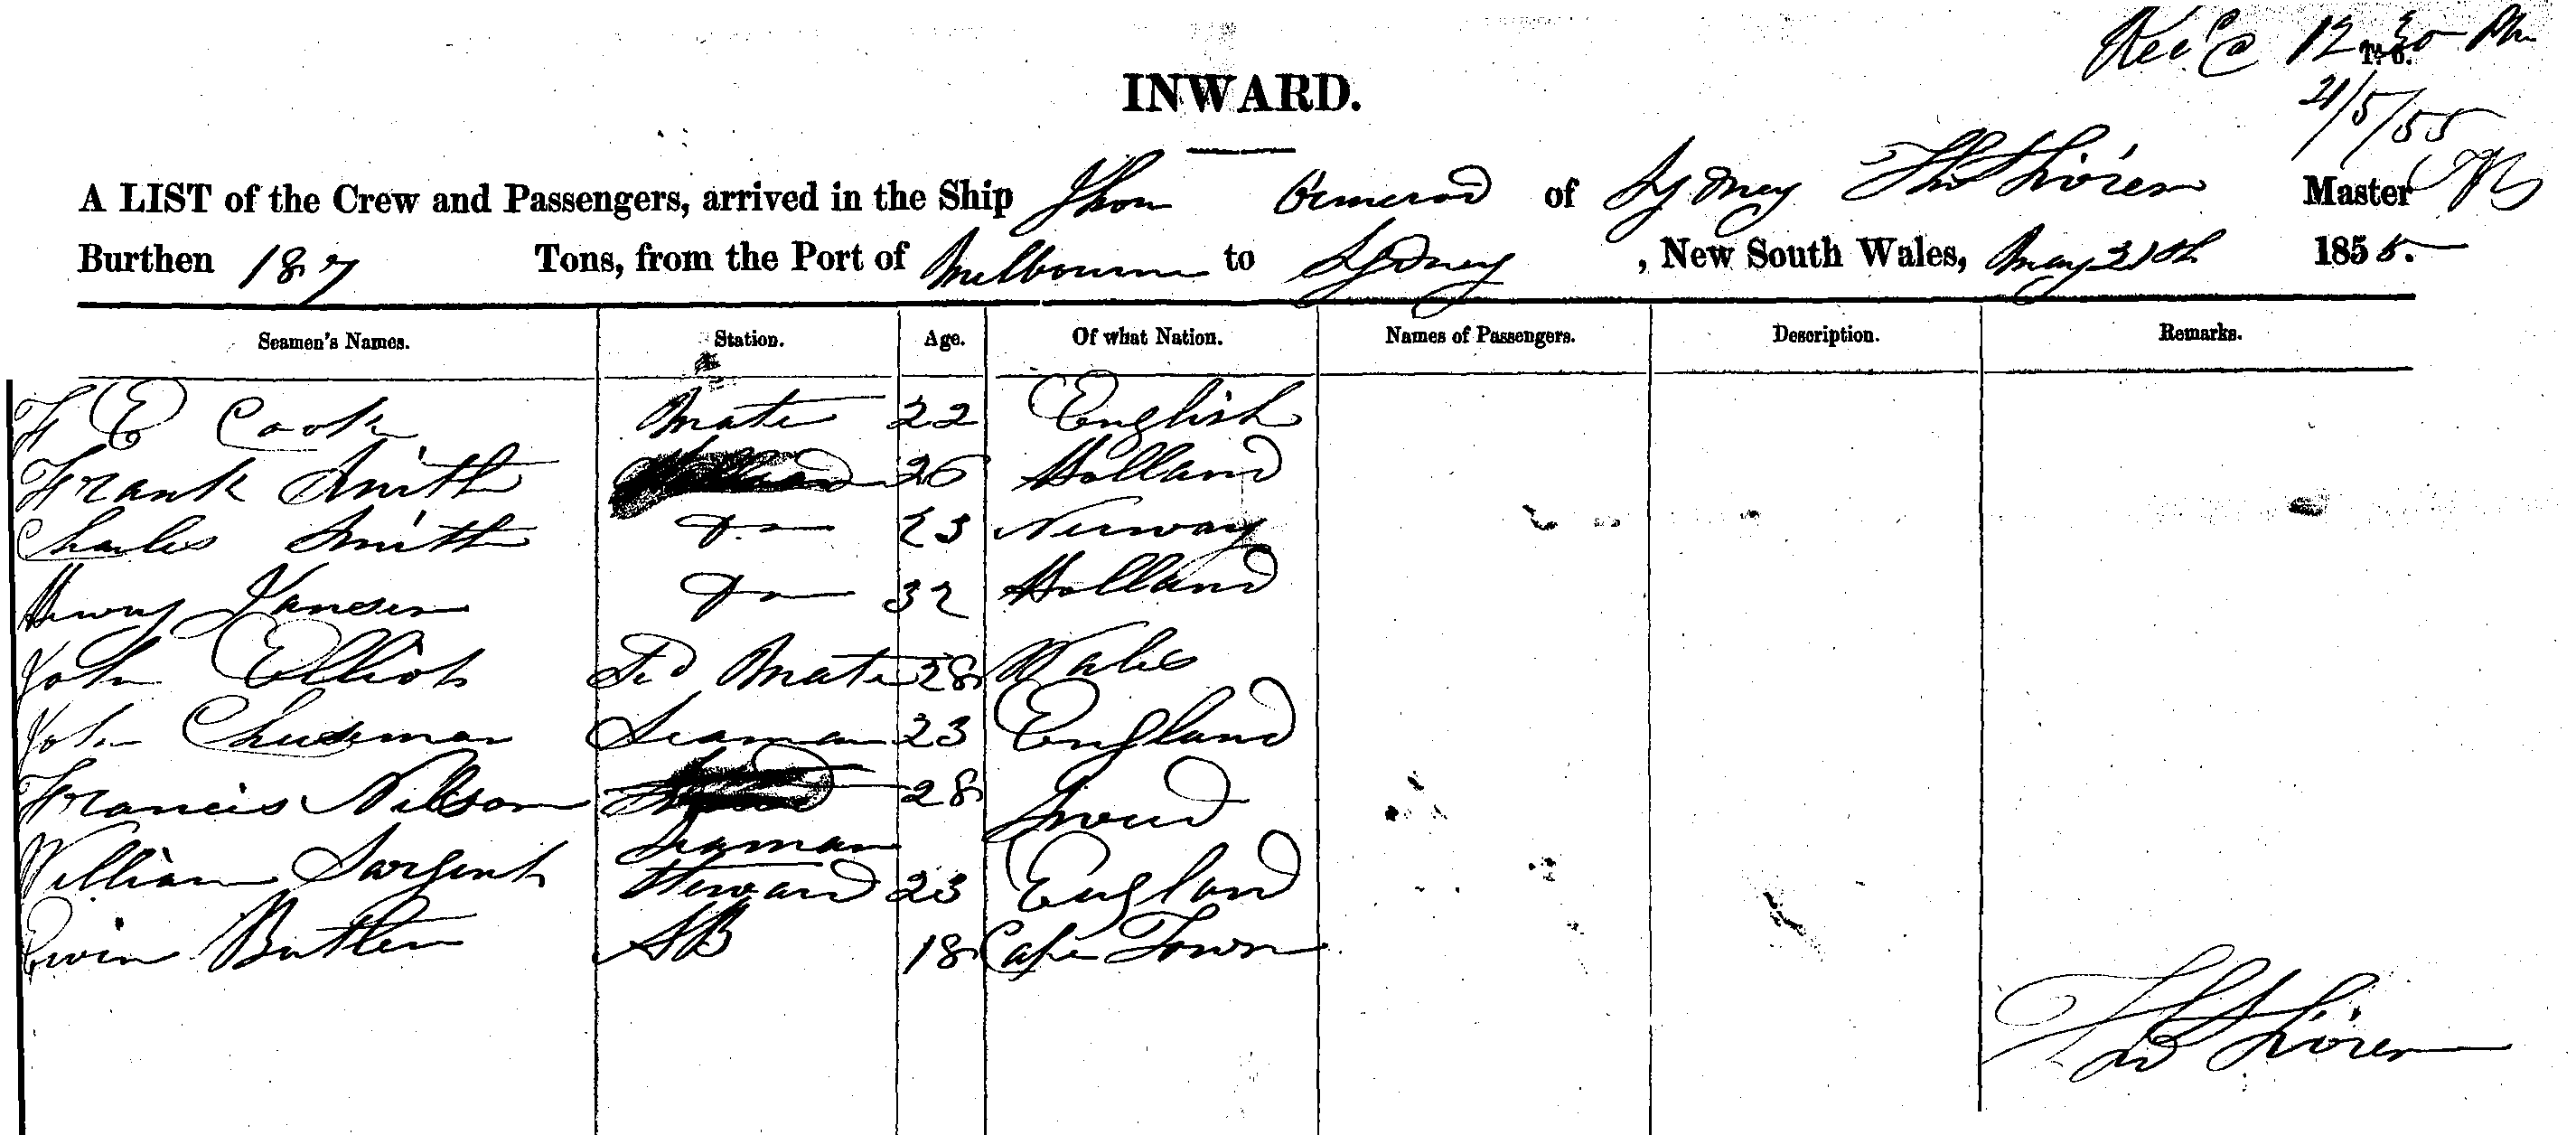 Rec'd 12.30 PM
T. 6.
INWARD.
21/5/55
A LIST of the Crew and Passengers, arrived in the Ship Jhon Ormerod of Sydney Thos Master
Burthen 187 Tons, from the Port of Melbourne to Sydney , New South Wales, May 21th 1855.
Seamen's Names. Station. Age. Of what Nation. Names of Passengers. Description. Remarks.
F E Cook Mate 22 English
Frank Smith 26 Holland
Charles Smith Do 23 Norway
Henry Jansen Do 32 Holland
John Elliot Mate 28 Wales
John Seaman 23 England
Francis Nilson 28
Seaman
William Sargent Steward 23 England
Butler AB 18 Cape Town
Thos